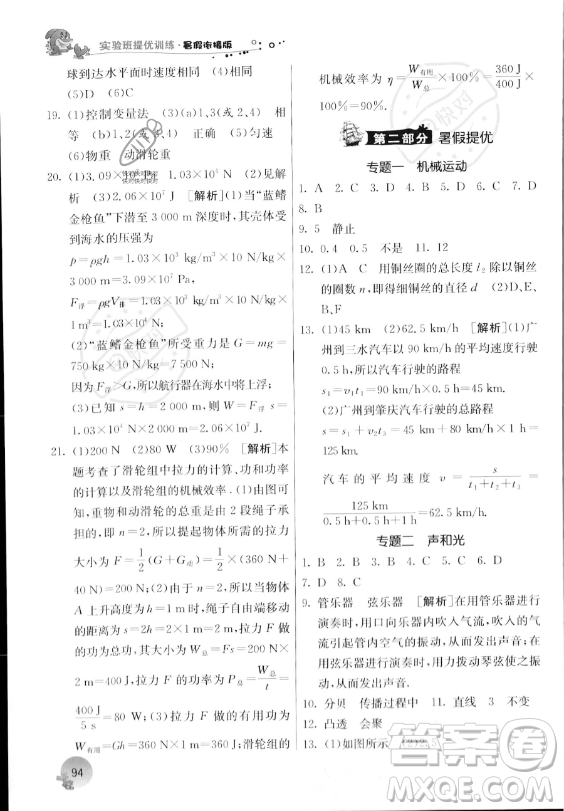 实验班提优训练·暑假衔接版
球到达水平面时速度相同 (4)相同
(5)D (6)C
19. (1)控制变量法 (3)a)1,3(或4) 相
等 (b)1,2(或4) 正确 (5)匀速
(6)物重 动滑轮重
20. (1)3.09×10 (2)见解
析 (3)2.06×10⁷ J [解析](1)当“蓝鳍
金枪鱼”下潜至 3 000 m 深度时,其壳体受
到海水的压强为
p=ρgh=1.03×10³ kg/m³×10 N/kg×
3 000 m=3.09×10⁷ Pa
F浮=ρgV排=1.03×10³ kg/m³×10 N/kg×
1 m³=1.03×10⁴ N
(2)“蓝鳍金枪鱼”所受重力为 G=mg=
750 kg×10 N/kg=7 500 N;
因为F浮>G,所以航行器在海水中将上浮;
(3)已知 s=h=2 000 m,所以 W=Fs=
1.03×10⁴ N×2 000 m=2.06×10⁷ J
21. (1)200 N (2)80 W (3)90% [解析]本
题考查了滑轮组中拉力的计算、功和功率
的计算以及滑轮组的机械效率. (1)由图可
知,物体和动滑轮的总重是由 2 段绳子承
担的,所以提起物体所需要的拉力
大小为 F=1/2(G+G动)=1/2×(360 N+
40 N)=200 N (2)由题图知,n=2,物体
A 上升高度为 h=1 m,绳子自由端移动
的距离为 s=2h=2×1 m=2 m;拉力 F
做功大小为 W总=Fs=200 N×
2 m=400 J,拉力 F 的功率为 P=W总/t=
400 J/5 s=80 W;(3)拉力 F 做的有用功为
W有用=Gh=360 N×1 m=360 J;滑轮组的
94
机械效率为 η=W有用/W总×100%=360 J/400 J×
100%=90%.
第二部分 暑假提优
专题一 机械运动
1. A 2. C 3. C 4. B 5. D 6. D 7. D
8. B
9. 5 静止
10. 0.4 0.5 不是 11. 12
12. (1)A C 用铜丝圈的总长度 l₂ 除以铜丝
的圈数 n,即得细铜丝的直径 d (2)D、E、
B、F
13. (1)45 km (2)62.5 km/h [解析](1)广
州到三水汽车以 90 km/h 的平均速度行驶
0.5 h,所以汽车行驶的路程
s₁=v₁t₁=90 km/h×0.5 h=45 km
(2)广州到肇庆汽车行驶的总路程
s=s₁+s₂=45 km+80 km=125 km
汽车的平均速度 v=s/(t₁+t₂+t₃)=
125 km/(0.5 h+0.5 h+1 h)=62.5 km/h
专题二 声和光
1. B 2. B 3. C 4. B 5. D 6. D
7. D 8. C
9. 管乐器 弦乐器 [解析]在用管乐器进行
演奏时,用口向乐器内吹入气流,吹入的气
流引起管内空气的振动,从而发出声音.用
弦乐器进行演奏时,用力拨动琴弦使之振
动,从而发出声音.
10. 分贝 传播过程中 11. 直线 3 不变
12. 凸透 会聚
13. (1)如图所示
答案圈
MXQE.COM